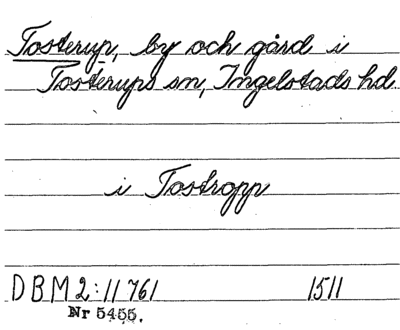 Tosterup, by och gård i
Tosterups sn, Ingelstads hd.
i Tostropp
DBM 2:11 761 1511
Nr 5455.